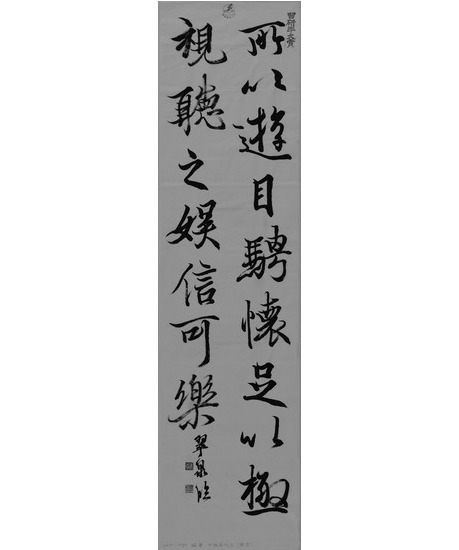 所以遊目騁懷足以極
視聽之娛信可樂
翠泉臨